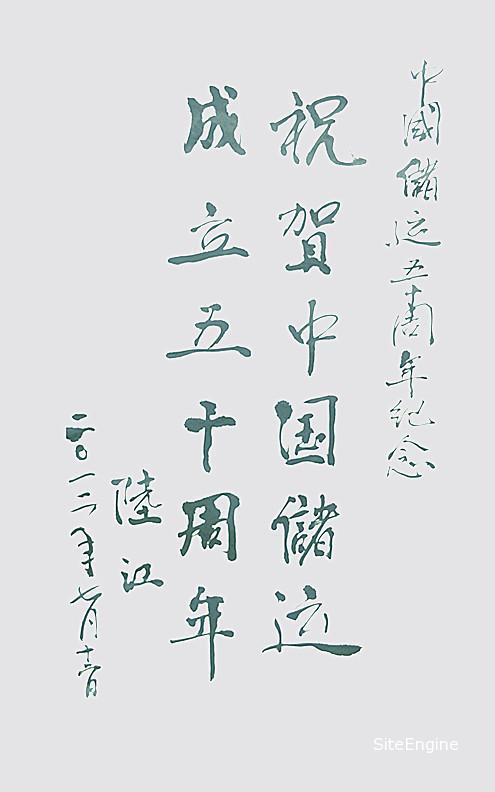 中國儲运五十周年纪念
祝賀中国儲运
成立五十周年
陸江
二〇一二年七月
SiteEngine